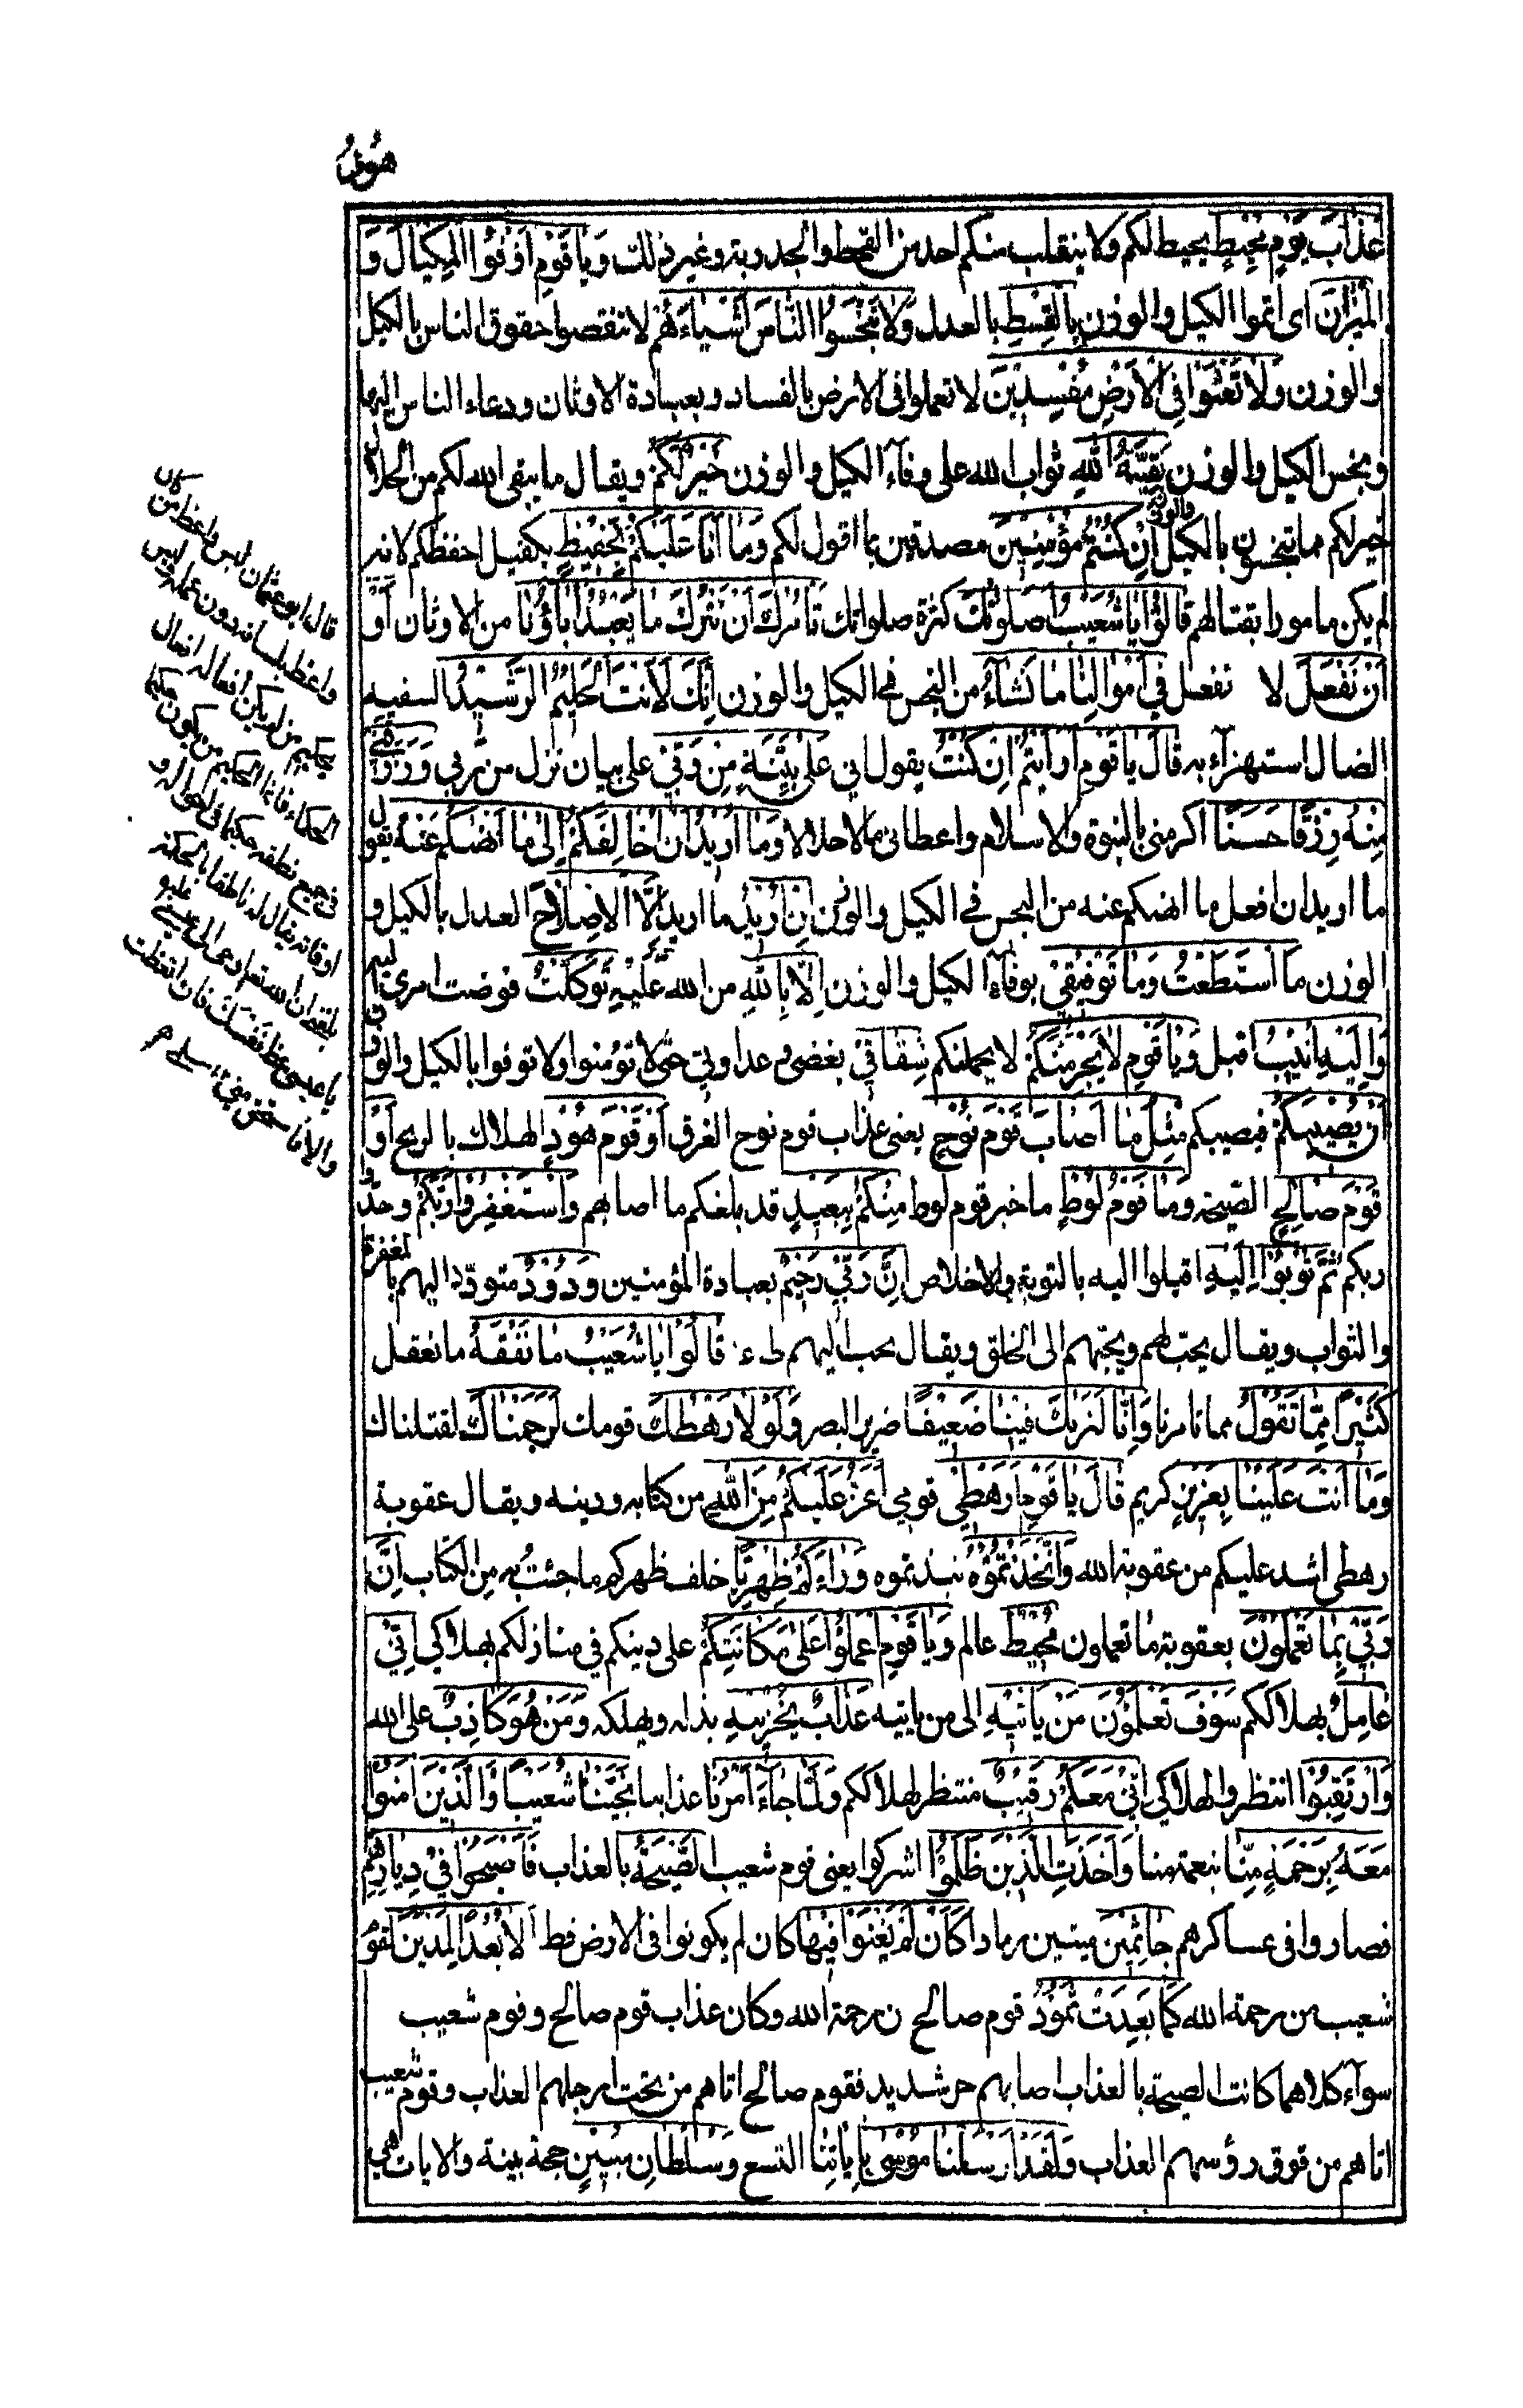 هود
عَذَابَ يَوْمٍ مُحِيطٍ يحيط لكم ولا ينقلب منكم احد من القحط والجدوبة وغير ذلك وَيَا قَوْمِ اَوْفُوا المِكْيَالَ وَ
المِيْزَانَ اى اتموا الكيل والوزن بِالْقِسْطِ بالعدل وَلَا تَبْخَسُوا النَّاسَ اَشْيَاءَهُمْ لا تنقصوا حقوق الناس بالكيل
والوزن وَلَا تَعْثَوْا فِى الْاَرْضِ مُفْسِدِيْنَ لا تعملوا فى الارض بالفساد وبعبادة الاوثان ودعاء الناس اليها
وبخس الكيل والوزن بَقِيَّةُ اللّٰهِ ثواب الله على وفآء الكيل والوزن خَيْرٌ لَّكُمْ ويقال ما يبقى الله لكم من الحلال
خير لكم مما تبخسون بالكيل والوزن اِنْ كُنْتُمْ مُؤْمِنِيْنَ مصدقين بما اقول لكم وَمَا اَنَا عَلَيْكُمْ بِحَفِيْظٍ بكفيل احفظكم لانه
لم يكن مامورا بقتالهم قَالُوْا يَا شُعَيْبُ اَصَلٰوتُكَ كثرة صلواتك تَأْمُرُكَ اَنْ نَتْرُكَ مَا يَعْبُدُ اٰبَاؤُنَا من الاوثان اَوْ
اَنْ نَفْعَلَ لا نفعل فِيْ اَمْوَالِنَا مَا نَشَآءُ من البخس فى الكيل والوزن اِنَّكَ لَاَنْتَ الْحَلِيْمُ الرَّشِيْدُ السفيه
الضال استهزآء به قَالَ يَا قَوْمِ اَرَاَيْتُمْ اِنْ كُنْتُ يقول انى عَلٰى بَيِّنَةٍ مِنْ رَبِّيْ على بيان نزل من ربى وَرَزَقَنِيْ
مِنْهُ رِزْقًا حَسَنًا اكرمنى بالنبوة والاسلام واعطانى مالا حلالا وَمَا اُرِيْدُ اَنْ اُخَالِفَكُمْ اِلٰى مَا اَنْهٰىكُمْ عَنْهُ يقول
ما اريد ان افعل ما انهىكم عنه من البخس فى الكيل والوزن اِنْ اُرِيْدُ ما اريد اِلَّا الْاِصْلَاحَ العدل بالكيل و
الوزن مَا اسْتَطَعْتُ وَمَا تَوْفِيْقِيْ بوفآء الكيل والوزن اِلَّا بِاللّٰهِ من الله عَلَيْهِ تَوَكَّلْتُ فوضت امرى اليه
وَاِلَيْهِ اُنِيْبُ اقبل وَيَا قَوْمِ لَا يَجْرِمَنَّكُمْ لا يحملنكم شِقَاقِيْ بغضى وعداوتى حتى لا تؤمنوا ولا توفوا بالكيل والوزن
اَنْ يُصِيْبَكُمْ فيصيبكم مِثْلُ مَا اَصَابَ قَوْمَ نُوْحٍ يعنى عذاب قوم نوح الغرق اَوْ قَوْمَ هُوْدٍ الهلاك بالريح اَوْ
قَوْمَ صَالِحٍ الصيحة وَمَا قَوْمُ لُوْطٍ ما خبر قوم لوط مِنْكُمْ بِبَعِيْدٍ قد بلغكم ما اصابهم وَاسْتَغْفِرُوْا رَبَّكُمْ وحدوا
ربكم ثُمَّ تُوْبُوْا اِلَيْهِ اقبلوا اليه بالتوبة والاخلاص اِنَّ رَبِّيْ رَحِيْمٌ بعبادة المؤمنين وَدُوْدٌ متودد اليهم بالمغفرة
والثواب ويقال يحب لهم ويحبهم الى الخلق ويقال يحب اليهم ط ء قَالُوْا يَا شُعَيْبُ مَا نَفْقَهُ ما نعقل
كَثِيْرًا مِمَّا تَقُوْلُ مما تامرنا وَاِنَّا لَنَرٰىكَ فِيْنَا ضَعِيْفًا ضرير البصر وَلَوْلَا رَهْطُكَ قومك لَرَجَمْنَاكَ لقتلناك
وَمَا اَنْتَ عَلَيْنَا بِعَزِيْزٍ كريم قَالَ يَا قَوْمِ اَرَهْطِيْ قومى اَعَزُّ عَلَيْكُمْ مِنَ اللّٰهِ من كتابه ودينه ويقال عقوبة
رهطى اشد عليكم من عقوبة الله وَاتَّخَذْتُمُوْهُ نبذتموه وَرَاءَكُمْ ظِهْرِيًّا خلف ظهركم ما جئت به من الكتاب اِنَّ
رَبِّيْ بِمَا تَعْمَلُوْنَ بعقوبة ما تعملون مُحِيْطٌ عالم وَيَا قَوْمِ اعْمَلُوْا عَلٰى مَكَانَتِكُمْ على دينكم فى منازلكم بهلاكى اِنِّيْ
عَامِلٌ بهلاككم سَوْفَ تَعْلَمُوْنَ مَنْ يَأْتِيْهِ الى من ياتيه عَذَابٌ يُخْزِيْهِ يذله ويهلكه وَمَنْ هُوَ كَاذِبٌ على الله
وَارْتَقِبُوْا انتظروا لهلاكى اِنِّيْ مَعَكُمْ رَقِيْبٌ منتظر لهلاككم وَلَمَّا جَاءَ اَمْرُنَا عذابنا نَجَّيْنَا شُعَيْبًا وَالَّذِيْنَ اٰمَنُوْا
مَعَهُ بِرَحْمَةٍ مِنَّا بنعمة منا وَاَخَذَتِ الَّذِيْنَ ظَلَمُوْا اشركوا يعنى قوم شعيب الصَّيْحَةُ بالعذاب فَاَصْبَحُوْا فِيْ دِيَارِهِمْ
فصاروا فى عساكرهم جَاثِمِيْنَ ميتين رمادا كَاَنْ لَمْ يَغْنَوْا فِيْهَا كان لم يكونوا فى الارض قط اَلَا بُعْدًا لِمَدْيَنَ لقوم
شعيب من رحمة الله كَمَا بَعِدَتْ ثَمُوْدُ قوم صالح ن رحمة الله وكان عذاب قوم صالح وقوم شعيب
سوآء كلاهما كانت الصيحة بالعذاب اصابهم حر شديد فقوم صالح اتاهم من تحت ارجلهم العذاب وقوم شعيب
اتاهم من فوق رؤسهم العذاب وَلَقَدْ اَرْسَلْنَا مُوْسٰى بِاٰيَاتِنَا التسع وَسُلْطَانٍ مُبِيْنٍ حجة بينة والايات هى
قال ابو عثمان ليس واعظ من كان
واعظا بلسانه دون عمله وليس
بحكيم من لم يكن افعاله افعال
الحكماء فاذا الحكيم من يكون حكيما
فى جميع نطقه حكيما فى احواله و
اوقاته يقال له ناطقا بالحكمة
بلغه ان الله تعالى اوحى الى عيسى
يا عيسى عظ نفسك فان اتعظت
والا فاستحى منى سلمى